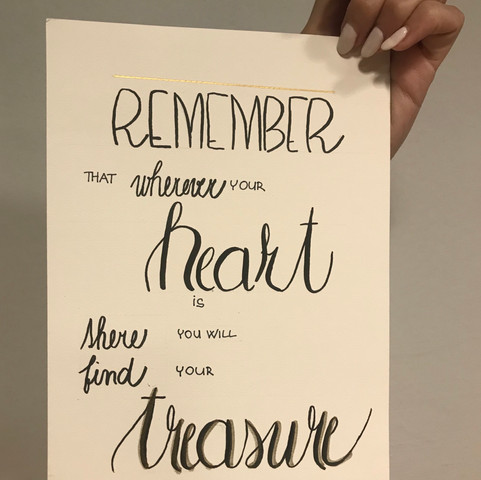 REMEMBER
THAT wherever YOUR
heart
is
there YOU WILL
find YOUR
treasure